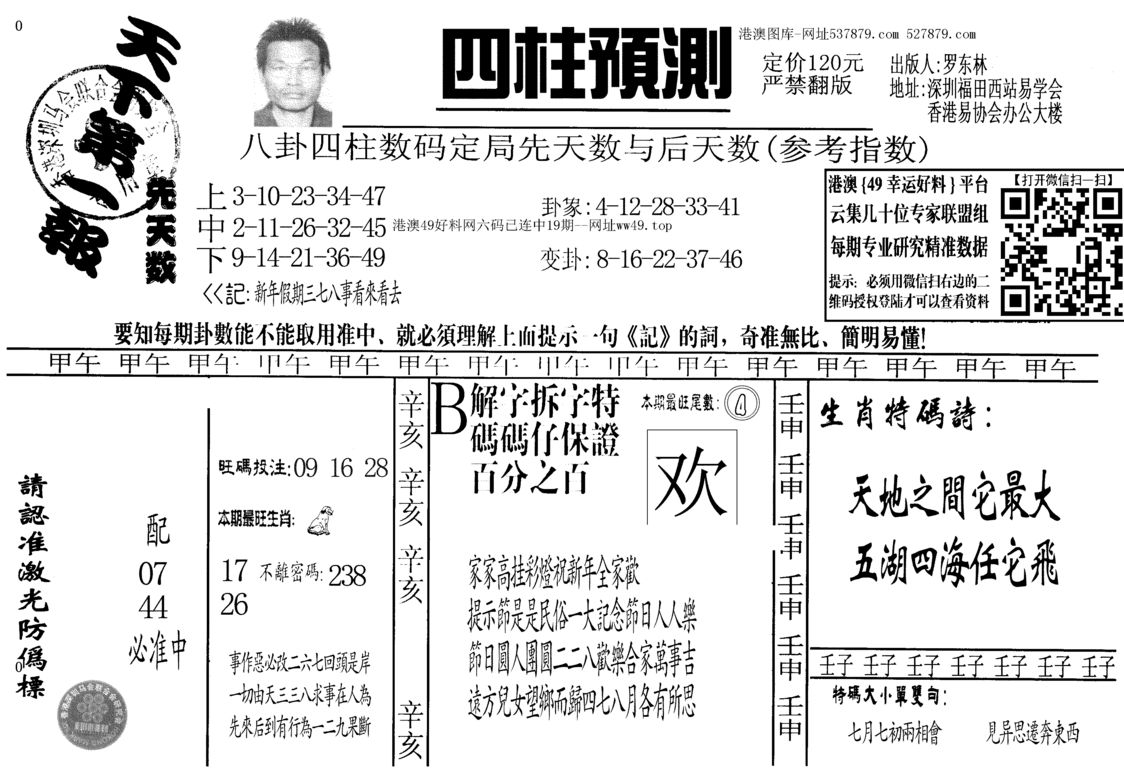 0
天下第一報
先天数
四柱預測
港澳图库-网址537879.com 527879.com
定价120元
严禁翻版
出版人:罗东林
地址:深圳福田西站易学会
香港易协会办公大楼
八卦四柱数码定局先天数与后天数(参考指数)
上 3-10-23-34-47
中 2-11-26-32-45
下 9-14-21-36-49
港澳49好料网六码已连中19期--网址ww49.top
卦象:4-12-28-33-41
变卦:8-16-22-37-46
<<記:新年假期三七八事看來看去
港澳{49幸运好料}平台
云集几十位专家联盟组
每期专业研究精准数据
提示: 必须用微信扫右边的二
维码授权登陆才可以查看资料
【打开微信扫一扫】
要知每期卦數能不能取用准中、就必須理解上面提示一句《記》的詞，奇准無比、簡明易懂!
甲午 甲午 甲午 甲午 甲午 甲午 甲午 甲午 甲午 甲午 甲午 甲午 甲午 甲午 甲午
請認准激光防僞標
配
07
44
必准中
旺碼投注:09 16 28
本期最旺生肖:
17 不離密碼:238
26
事作惡必改二六七回頭是岸
一切由天三三八求事在人為
先來后到有行為一二九果斷
辛亥
辛亥
辛亥
辛亥
B
解字拆字特
碼碼仔保證
百分之百
本期最旺尾數:
欢
家家高挂彩燈祝新年全家歡
提示節是是民俗一大記念節日人人樂
節日圓人團圓二二八歡樂合家萬事吉
遠方兒女望鄉而歸四七八月各有所思
壬申
壬申
壬申
壬申
壬申
壬申
生肖特碼詩:
天地之間它最大
五湖四海任它飛
壬子 壬子 壬子 壬子 壬子 壬子 壬子
特碼大小單雙句:
七月七初兩相會 見异思遷奔東西